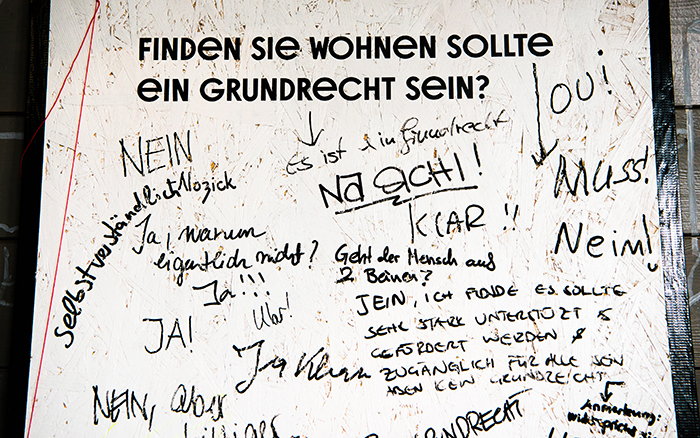 FINDEN SIE WOHNEN SOLLTE
EIN GRUNDRECHT SEIN?
OUI!
Es ist ein Grundrecht
NEIN
Nozick
NA SICHI!
Muss!
Selbstverständlich
KLAR!!
Nein!
Ja, warum
eigentlich nicht?
Geht der Mensch auf
2 Beinen?
Ja!!!
JEIN, ICH FINDE ES SOLLTE
SEHR STARK UNTERSTÜTZT &
GEFÖRDERT WERDEN &
ZUGÄNGLICH FÜR ALLE SEIN
ABER KEIN GRUNDRECHT
Klar!
JA!
Ja klar
Anmerkung:
widerspricht
NEIN, aber
billiger
GRUNDRECHT